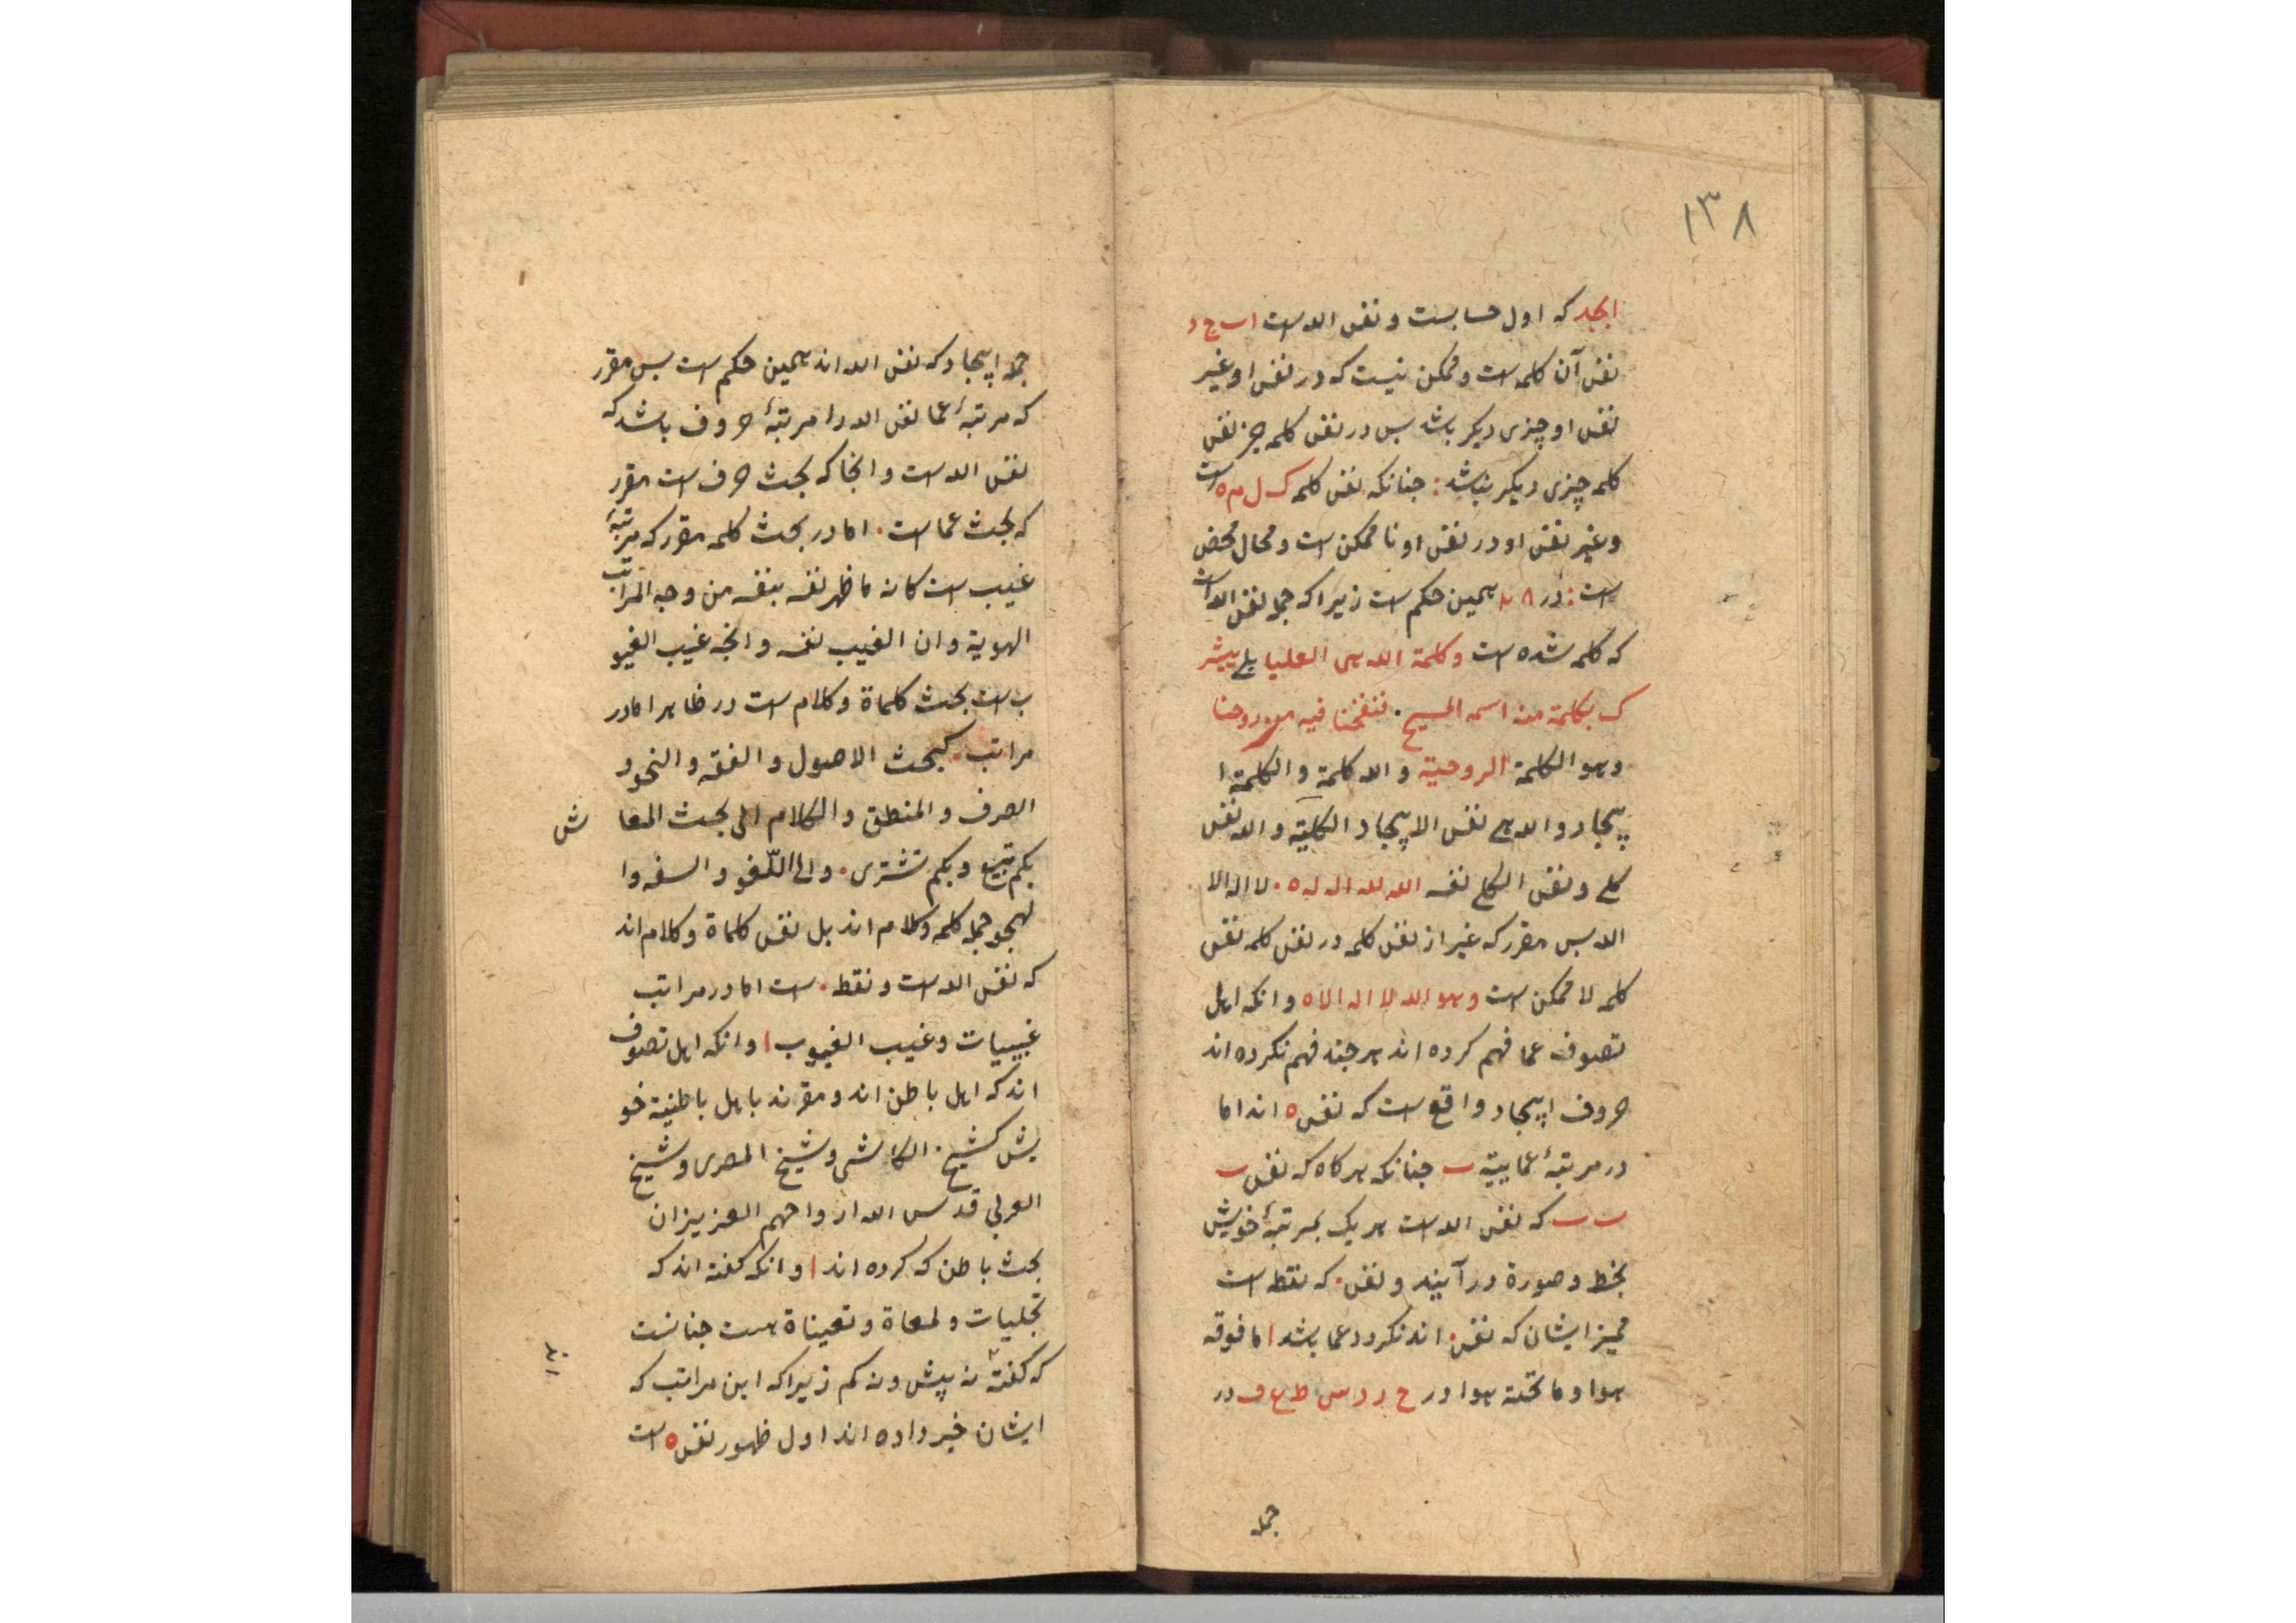 ١٣٨
ابجد که اول حسابست و نفس الله است ا ب ج د
نفس آن کلمه است و ممکن نیست که در نفس او غیر
نفس او چیزی دیکر باشد بس در نفس کلمه جز نفس
کلمه چیزی دیکر نباشد: جنانکه نفس کلمه ک ل م ه است
و غیر نفس او در نفس او نا ممکن است و محال محض
است: در همین حکم است زیرا که جمله نفس الله است
که کلمه شده است و کلمة الله هی العلیا یبشر
ک بکلمة منه اسمه المسیح. فنفخنا فیه من روحنا
و هو الکلمة الروحیة و الله کلمة و الکلمة ا
یجاد و الله هی نفس الایجاد الکلیة و الله نفس
کلی و نفس الکلی نفسه الله لله اله له ه. لا اله الا
الله بس مقرر که غیر از نفس کلمه در نفس کلمه نفس
کلمه لا ممکن است و هو الله لا اله الا ه و انکه اهل
تصوف عما فهم کرده اند هر جند فهم نکرده اند
حروف ایجاد واقع است که نفس ه اند اما
در مرتبهٔ عماییة ب جنانکه هر کاه که نفس ب
ب ب که نفس الله است هر یک بمرتبهٔ خویش
بخط و صورة در آیند و نفس. که نقطه است
ممیز ایشان که نفس. اند نکردد عما باشد ا ما فوقه
هوا و ما تحته هوا در ح د ر س ط ع ف در
جمله
جمله ایجاد که نفس الله اند همین حکم است بس مقرر
که مرتبهٔ عما نفس الله را مرتبهٔ حروف باشد که
نفس الله است و انجا که بحث حرف است مقرر
که بحث عما است. اما در بحث کلمه مقرر که مرتبهٔ
غیب است کانه ما ظهر نفسه بنفسه من وجه المراتب
الهویة و ان الغیب نفسه و انجه غیب الغیو
ب است بحث کلماة و کلام است در ظاهر اما در
مراتب. کبحث الاصول و الفقه و النحو و
الصرف و المنطق و الکلام الی بحث المعا ش
بکم تبیع و بکم تشتری. و الی اللغو و السفه و ا
لهجو جمله کلمه و کلام اند بل نفس کلماة و کلام اند
که نفس الله است و نقطه. است اما در مراتب
غیبیات و غیب الغیوب ا و انکه اهل تصوف
اند که اهل باطن اند و مقرند باهل باطنیة خو
یش کشیخ. الکاشی و شیخ المصری و شیخ
العربی قدس الله ارواحهم العزیزان
بحث باطن که کرده اند ا و انکه کفته اند که
تجلیات و لمعاة و تعیناة هست جنانست
که کفته نه پیش و نه کم زیرا که این مراتب که
ایشان خبر داده اند اول ظهور نفس ه است